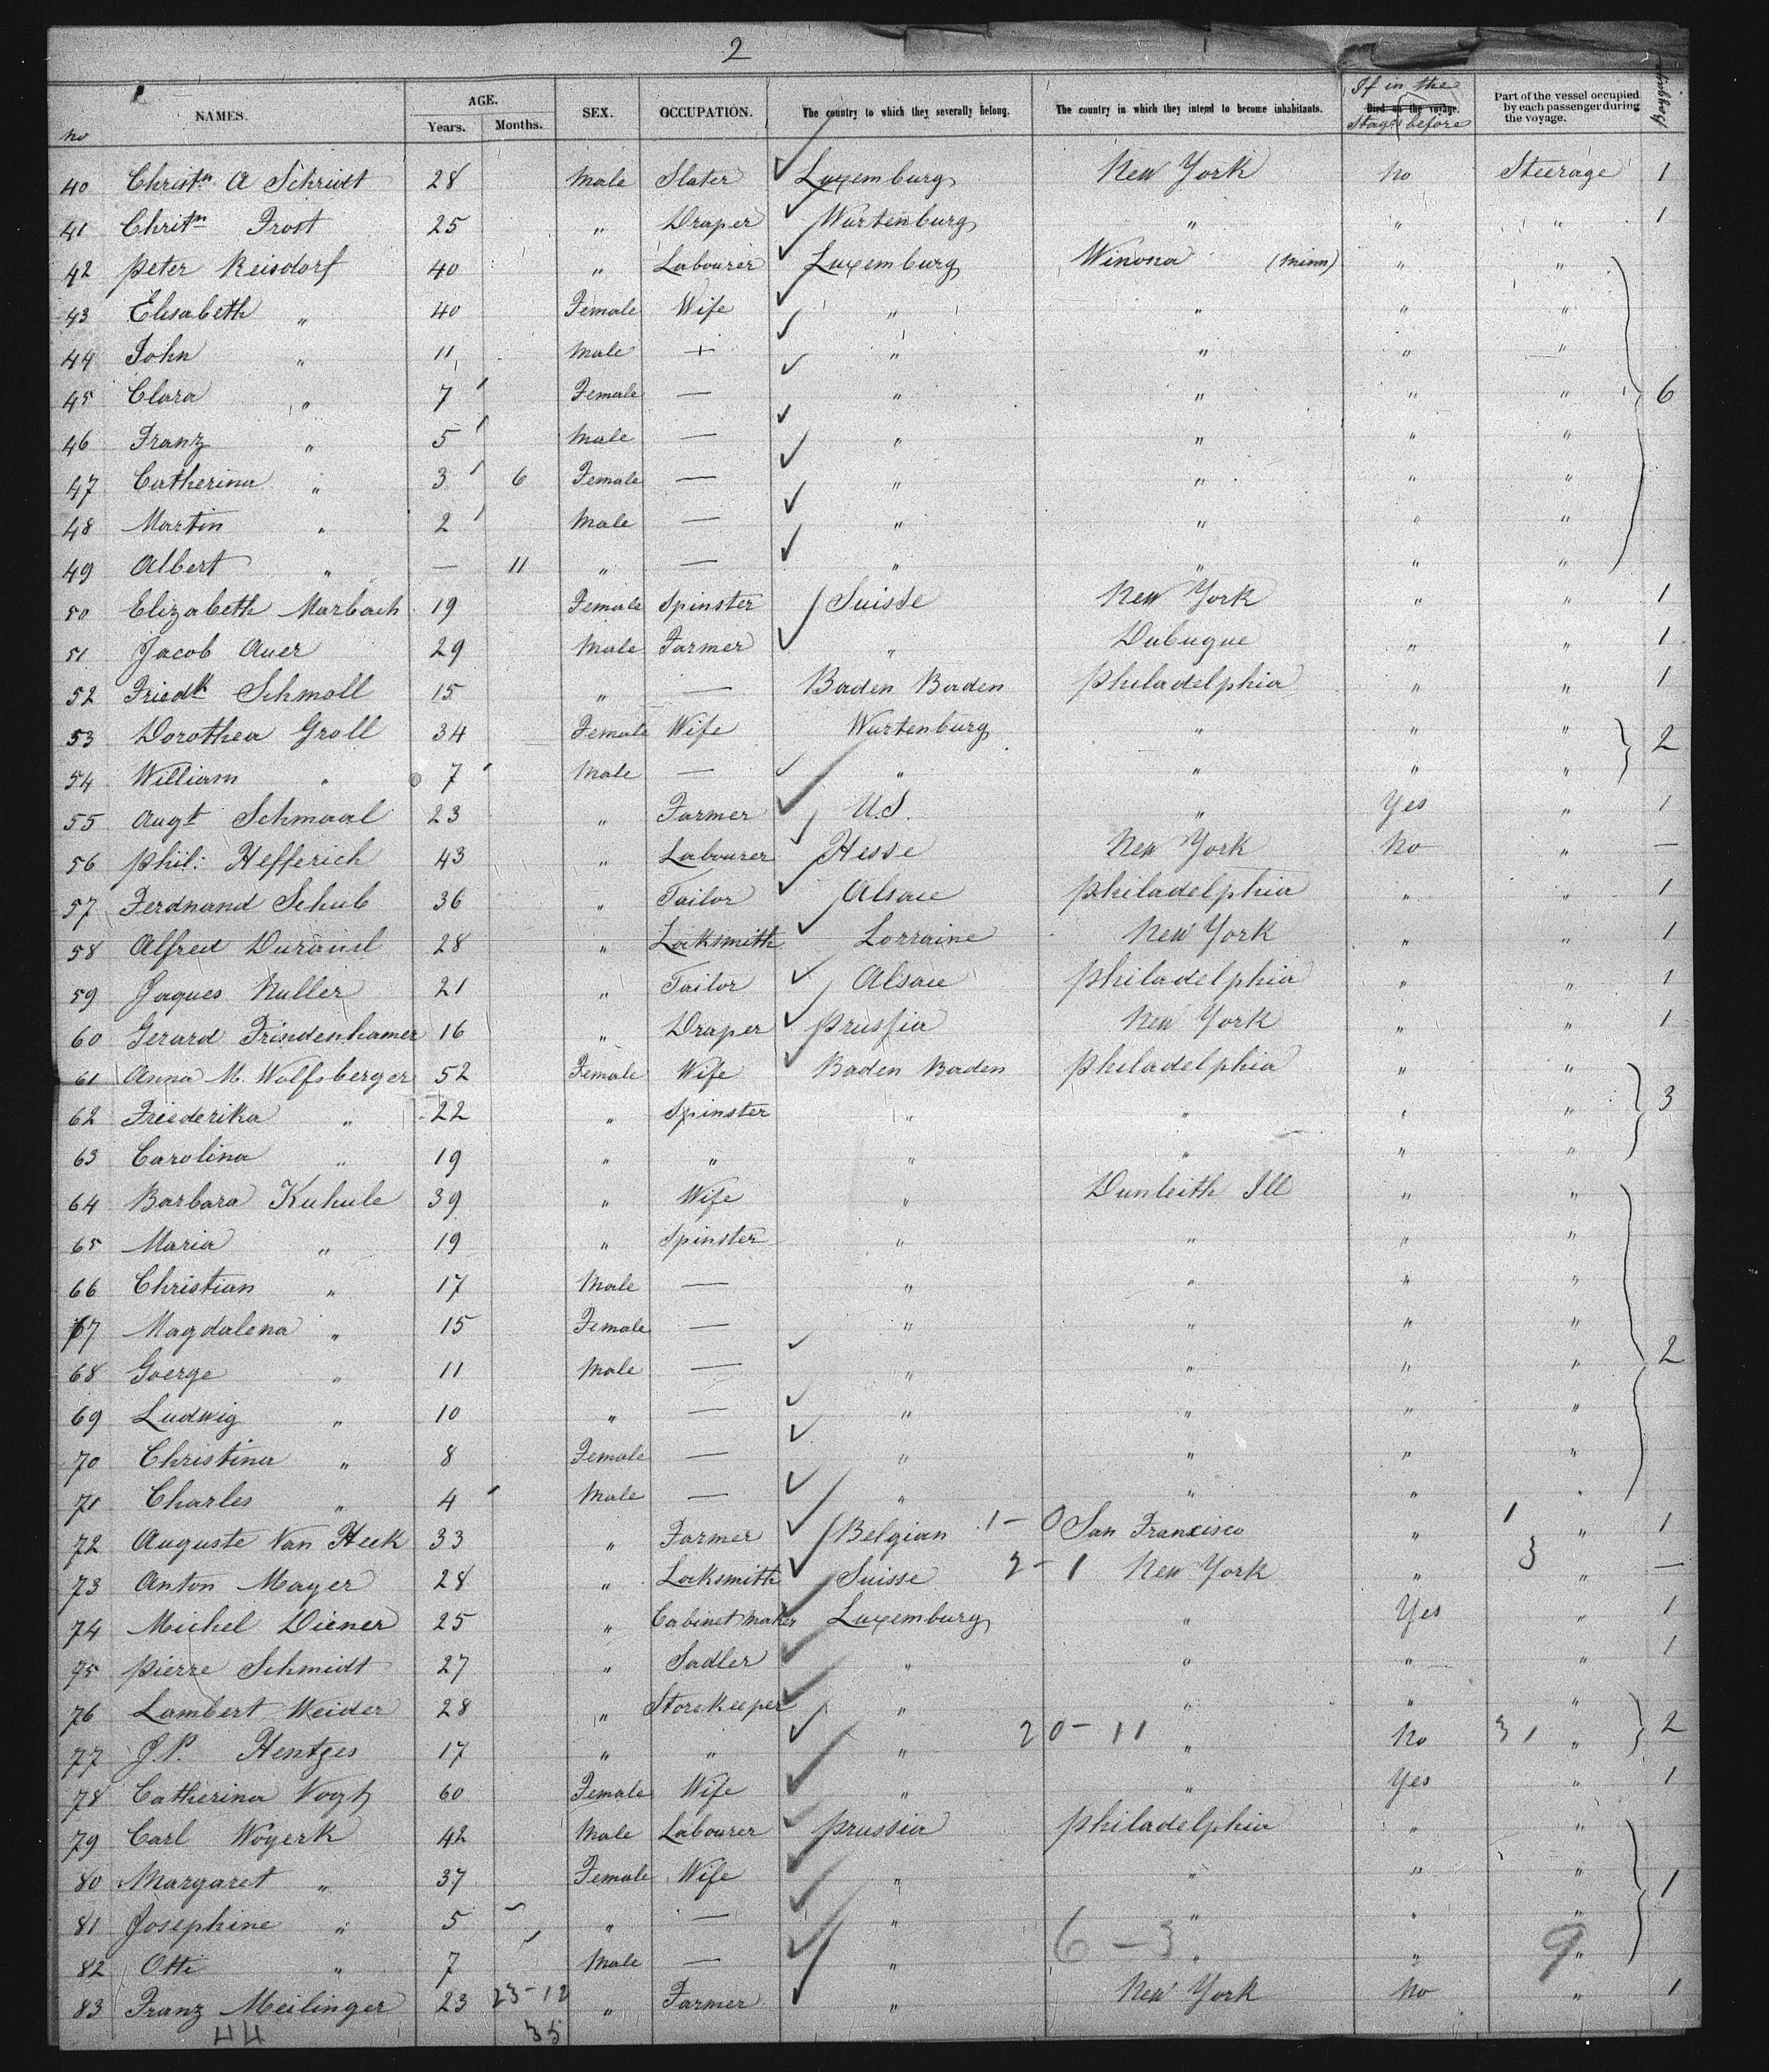 2
no NAMES. AGE. Years. Months. SEX. OCCUPATION. The country to which they severally belong. The country in which they intend to become inhabitants. Died on the voyage. If in the Stages before Part of the vessel occupied by each passenger during the voyage. Baggage
40 Christn A Schridt 28 Male Slater Luxemburg New York No Steerage 1
41 Chritn Frost 25 " Draper Wurtenburg " " " 1
42 Peter Reisdorf 40 " Labourer Luxemburg Winona (Minn) " "
43 Elisabeth " 40 Female Wife " " " "
44 John " 11 Male + " " " "
45 Clara " 7 Female — " " " " 6
46 Franz " 5 Male — " " " "
47 Catherina " 3 6 Female — " " " "
48 Martin " 2 Male — " " " "
49 Albert " — 11 " — " " " "
50 Elizabeth Marbach 19 Female Spinster Suisse New York " " 1
51 Jacob Auer 29 Male Farmer " Dubuque " " 1
52 Friedk Schmoll 15 " — Baden Baden Philadelphia " " 1
53 Dorothea Groll 34 Female Wife Wurtenburg " " " 2
54 William " 7 Male — " " " "
55 Augt Schmaal 23 " Farmer U.S. " Yes " 1
56 Phil: Hefferich 43 " Labourer Hesse New York No " —
57 Ferdnand Schub 36 " Tailor Alsace Philadelphia " " 1
58 Alfred 28 " Locksmith Lorraine New York " " 1
59 Jaques Muller 21 " Tailor Alsace Philadelphia " " 1
60 Gerard Frindenhamer 16 " Draper Prussia New York " " 1
61 Anna M. Wolfsberger 52 Female Wife Baden Baden Philadelphia " "
62 Friederika " 22 " Spinster " " " " 3
63 Carolina " 19 " " " " " "
64 Barbara Kuhule 39 " Wife " Dunleith Ill " "
65 Maria " 19 " Spinster " " " "
66 Christian " 17 Male — " " " "
67 Magdalena " 15 Female — " " " "
68 Goerge " 11 Male — " " " " 2
69 Ludwig " 10 " — " " " "
70 Christina " 8 Female — " " " "
71 Charles " 4 Male — " " " "
72 Auguste Van Heck 33 " Farmer Belgian 1-0 San Francisco " 1 " 1
73 Anton Mayer 28 " Locksmith Suisse 2-1 New York " 3 " —
74 Michel Diener 25 " Cabinet Maker Luxemburg " Yes " 1
75 Pierre Schmidt 27 " Sadler " " " " 1
76 Lambert Weider 28 " Storekeeper " " " "
77 J.P. Hentges 17 " " " 20-11 " No 31 " 2
78 Catherina Vogt 60 Female Wife " " Yes " 1
79 Carl Woyerk 42 Male Labourer Prussia Philadelphia " "
80 Margaret " 37 Female Wife " " " " 1
81 Josephine " 5 " — " " " "
82 Otti " 7 Male — " 6-3 " " 9 "
83 Franz Meilinger 23 23-12 " Farmer " New York No " 1
44 35